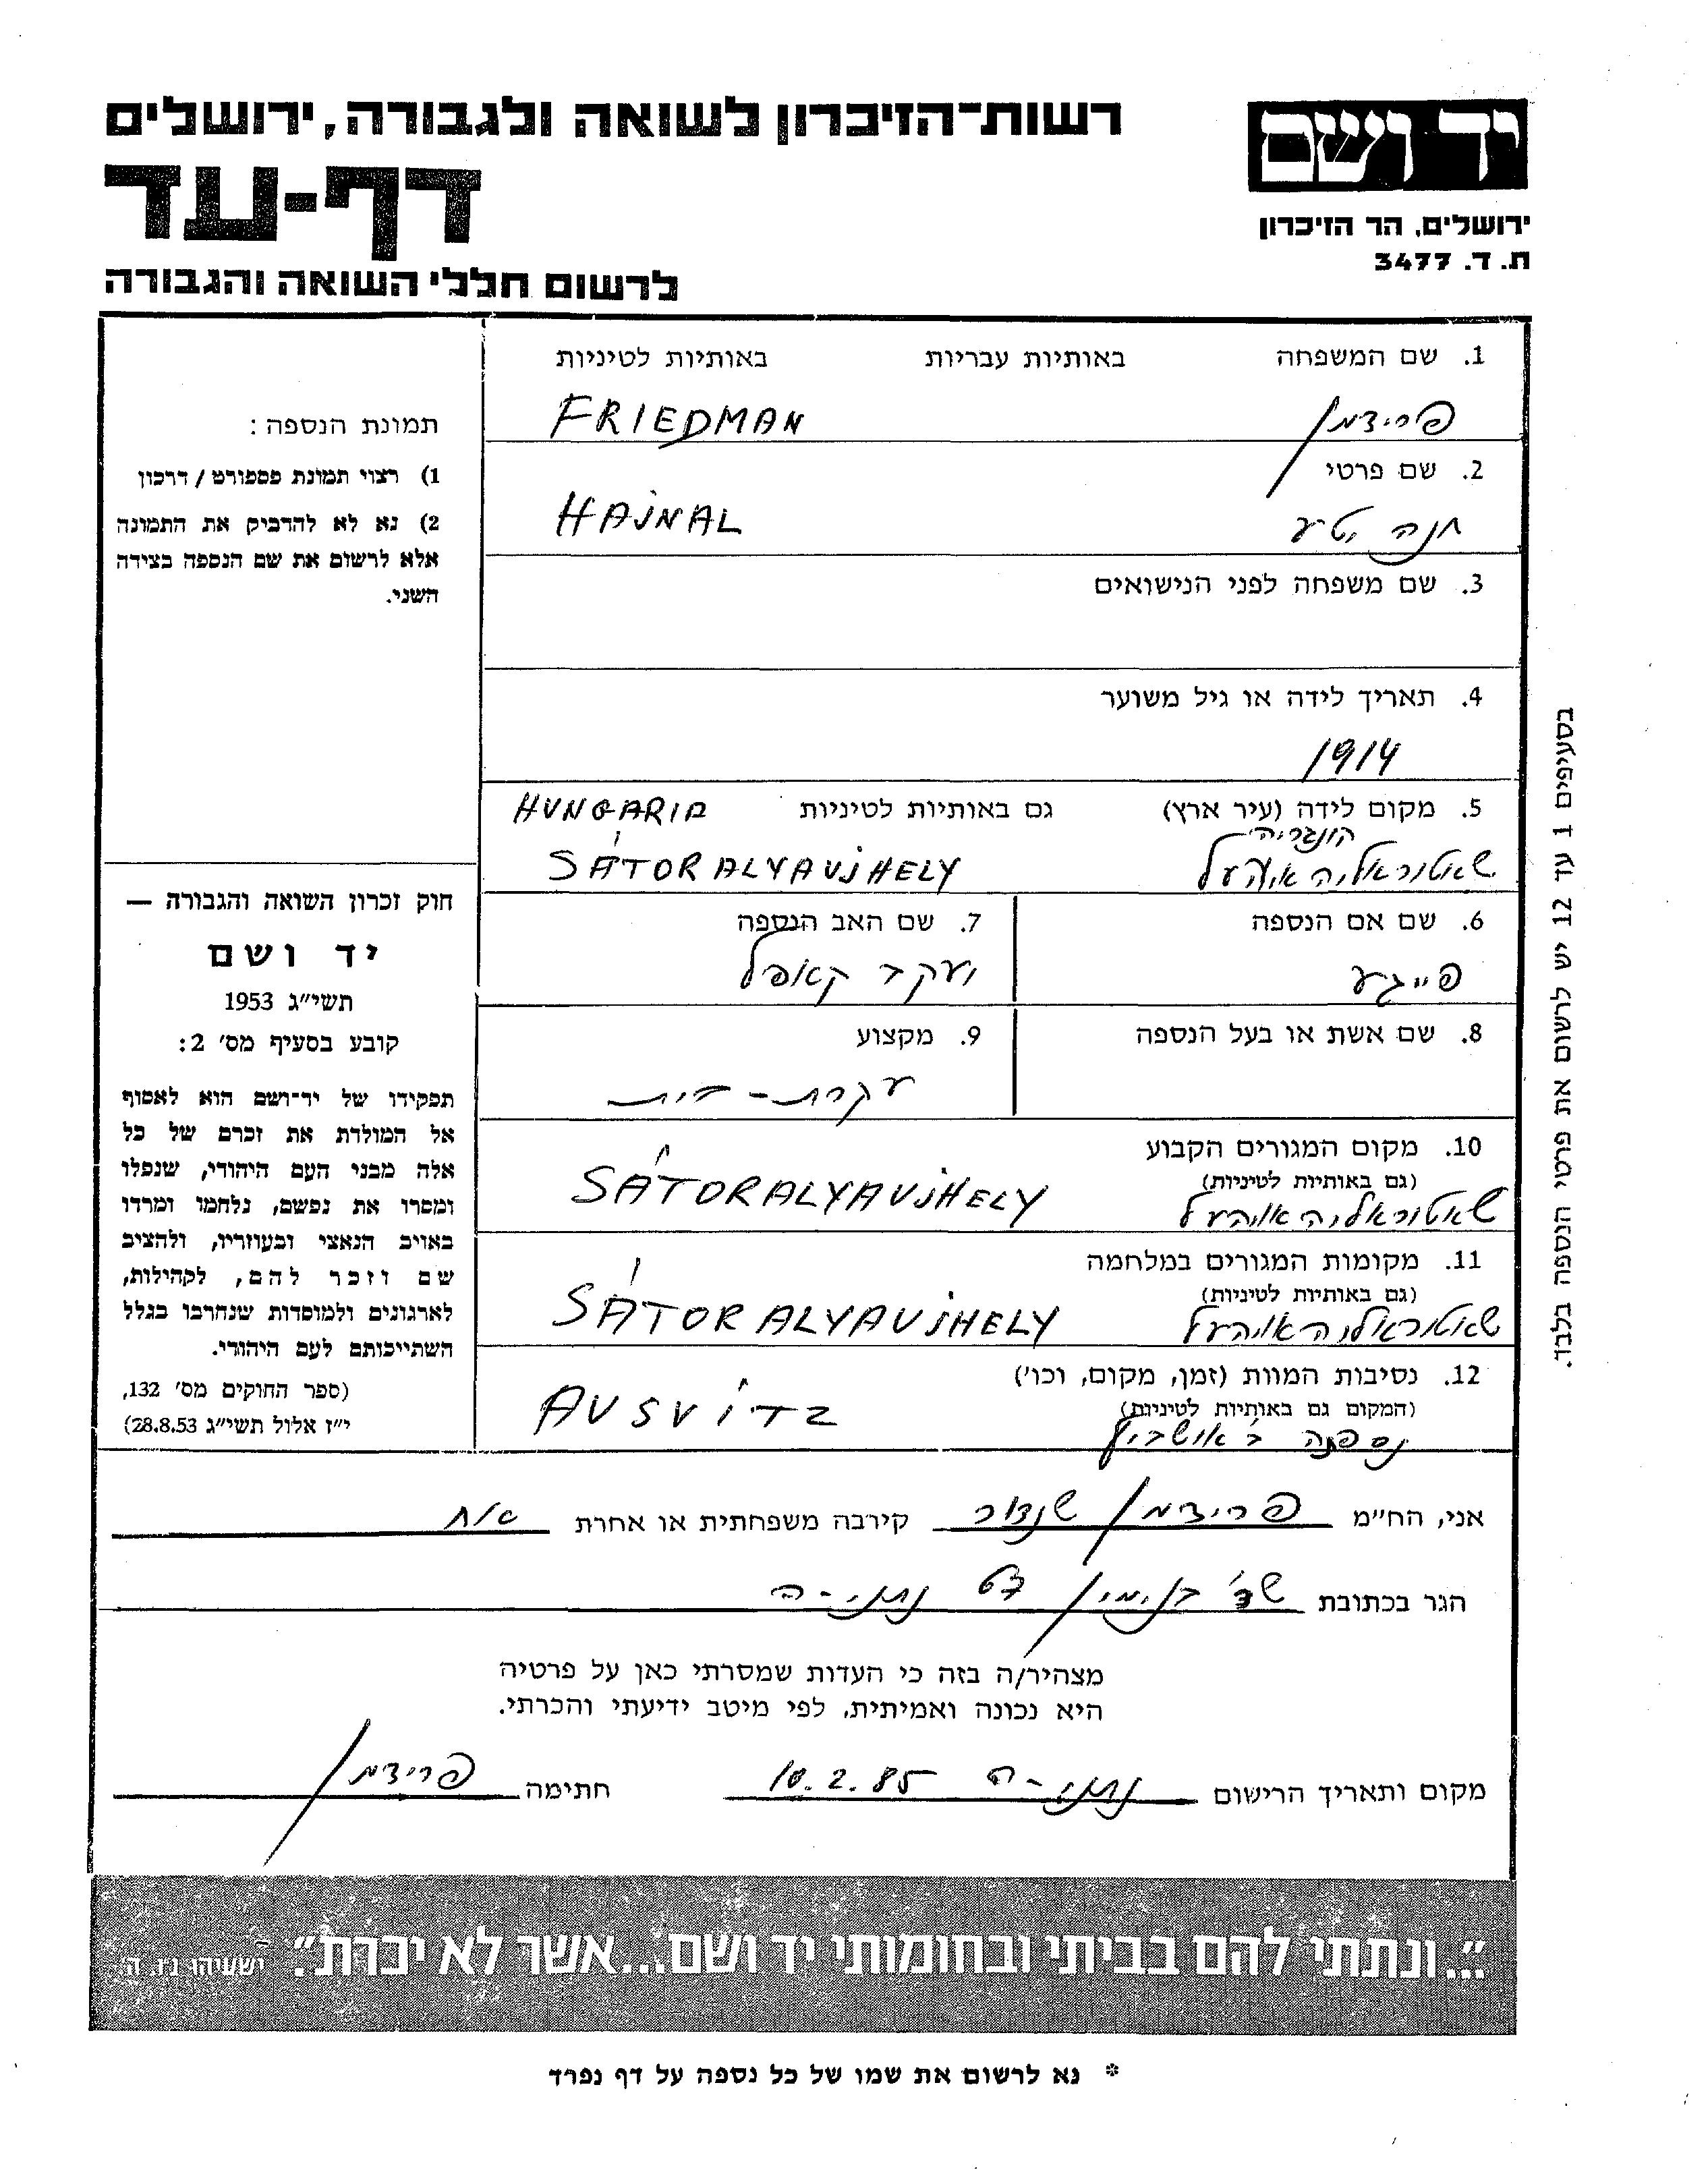 רשות־הזיכרון לשואה ולגבורה, ירושלים
דף-עד
לרשום חללי השואה והגבורה
יד ושם
ירושלים, הר הזיכרון
ת. ד. 3477
1. שם המשפחה באותיות עבריות באותיות לטיניות
פרידמן FRIEDMAN
2. שם פרטי
חנה יטע HAJNAL
3. שם משפחה לפני הנישואים
4. תאריך לידה או גיל משוער
1914
5. מקום לידה (עיר ארץ) גם באותיות לטיניות HUNGARIA
הונגריה
שאטוראליה אויהעל SÁTORALYAUJHELY
6. שם אם הנספה
פייגע
7. שם האב הנספה
יעקב קאפל
8. שם אשת או בעל הנספה
9. מקצוע
עקרת-בית
10. מקום המגורים הקבוע
(גם באותיות לטיניות)
שאטוראליה אויהעל SÁTORALYAUJHELY
11. מקומות המגורים במלחמה
(גם באותיות לטיניות)
שאטוראליה אויהעל SÁTORALYAUJHELY
12. נסיבות המוות (זמן, מקום, וכו')
(המקום גם באותיות לטיניות)
נספתה באושביץ AUSVITZ
תמונת הנספה:
1) רצוי תמונת פספורט / דרכון
2) נא לא להדביק את התמונה
אלא לרשום את שם הנספה בצידה
השני.
חוק זכרון השואה והגבורה —
יד ושם
תשי"ג 1953
קובע בסעיף מס' 2:
תפקידו של יד־ושם הוא לאסוף
אל המולדת את זכרם של כל
אלה מבני העם היהודי, שנפלו
ומסרו את נפשם, נלחמו ומרדו
באויב הנאצי ובעוזריו, ולהציב
שם וזכר להם, לקהילות,
לארגונים ולמוסדות שנחרבו בגלל
השתייכותם לעם היהודי.
(ספר החוקים מס' 132,
י"ז אלול תשי"ג 28.8.53)
בסעיפים 1 עד 12 יש לרשום את פרטי הנספה בלבד.
אני, הח"מ פרידמן שנדור קירבה משפחתית או אחרת אח
הגר בכתובת שד' בנימין נתניה
מצהיר/ה בזה כי העדות שמסרתי כאן על פרטיה
היא נכונה ואמיתית, לפי מיטב ידיעתי והכרתי.
מקום ותאריך הרישום נתניה 10.2.85 חתימה פרידמן
"...ונתתי להם בביתי ובחומותי יד ושם...אשר לא יכרת". ישעיהו נו, ה
* נא לרשום את שמו של כל נספה על דף נפרד